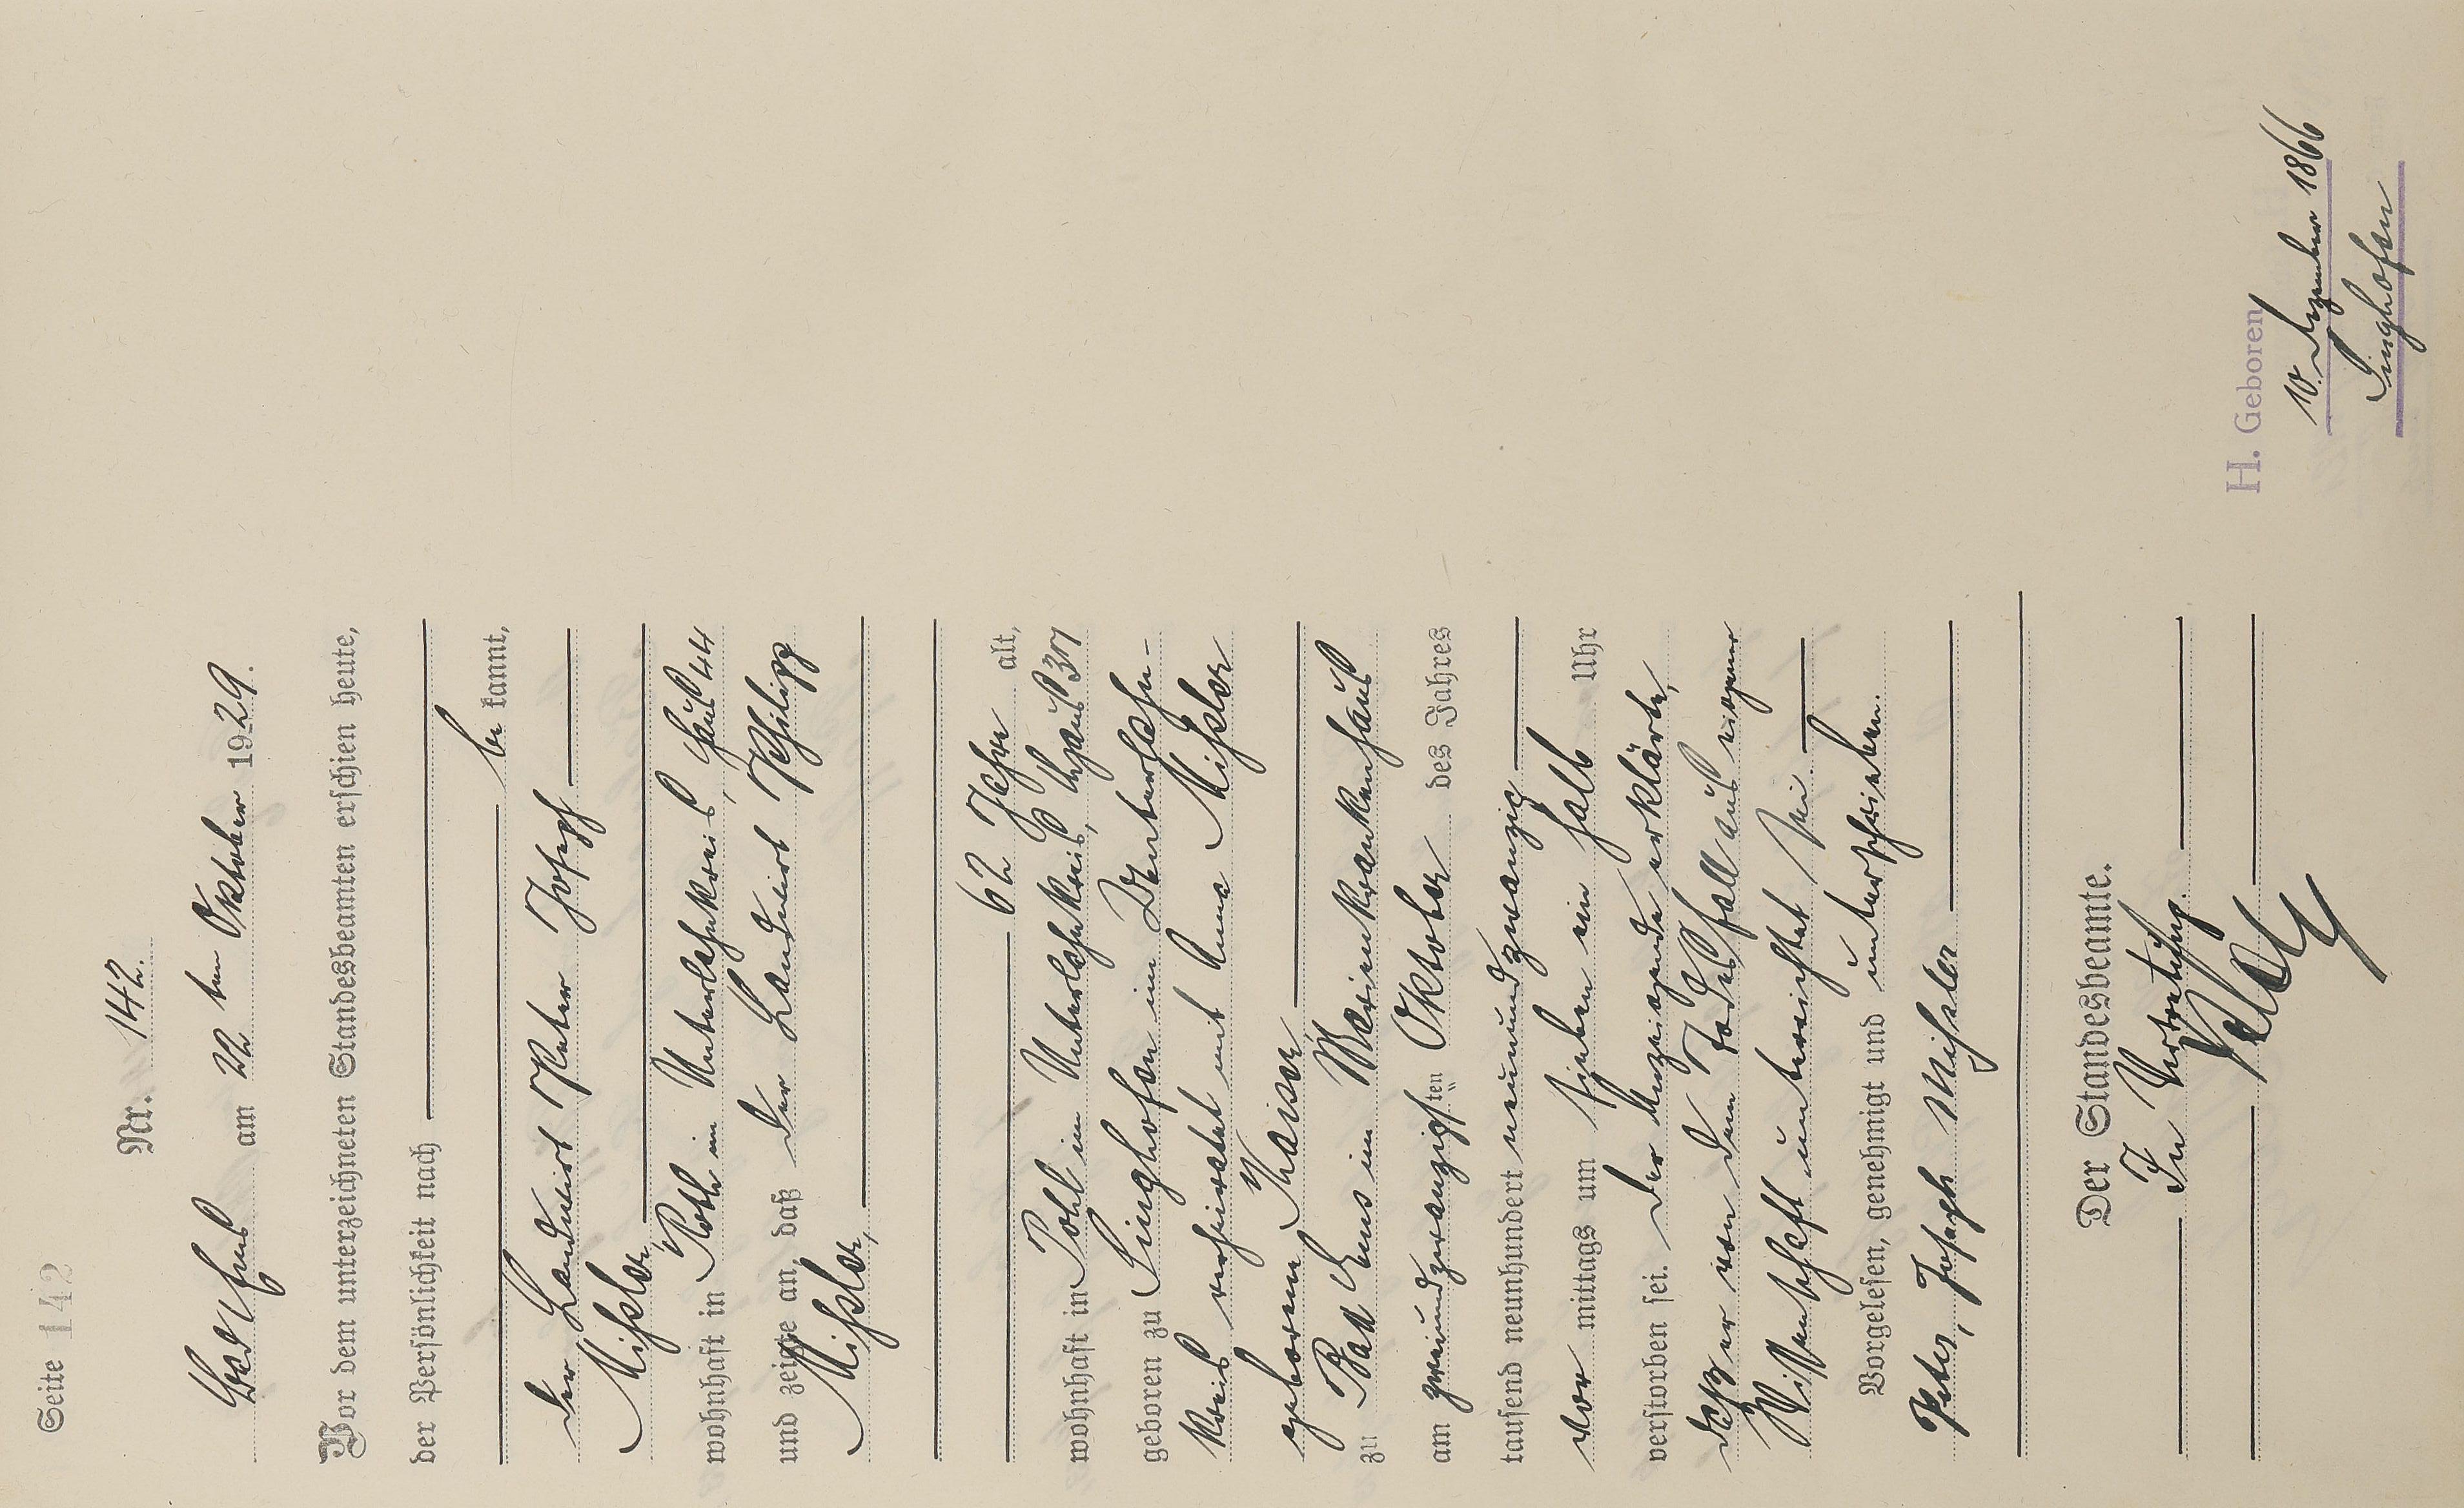 Seite 142
Nr. 142.
Bad Ems am 22 ten Oktober 1929.
Vor dem unterzeichneten Standesbeamten erschien heute,
der Persönlichkeit nach
be kannt,
der Landwirt Peter Josef
Mißler,
wohnhaft in Pohl im Unterlahnkreis, Haus 44
und zeigte an, daß der Landwirt Philipp
Mißler,
62 Jahre alt,
wohnhaft in Pohl im Unterlahnkreis, Haus 37
geboren zu Singhofen im Unterlahn-
kreis verheiratet mit Anna Mißler
geborene Kaiser,
zu Bad Ems im Marienkrankenhaus
am zweiundzwanzigsten Oktober des Jahres
tausend neunhundert neunundzwanzig
vor mittags um sieben ein halb Uhr
verstorben sei. Der Anzeigende erklärte,
daß er von dem Todesfall aus eigener
Wissenschaft unterrichtet sei.
Vorgelesen, genehmigt und unterschrieben.
Peter, Joseph Mißler
Der Standesbeamte.
In Vertretung.
H. Geboren
10. Dezember 1866
Singhofen